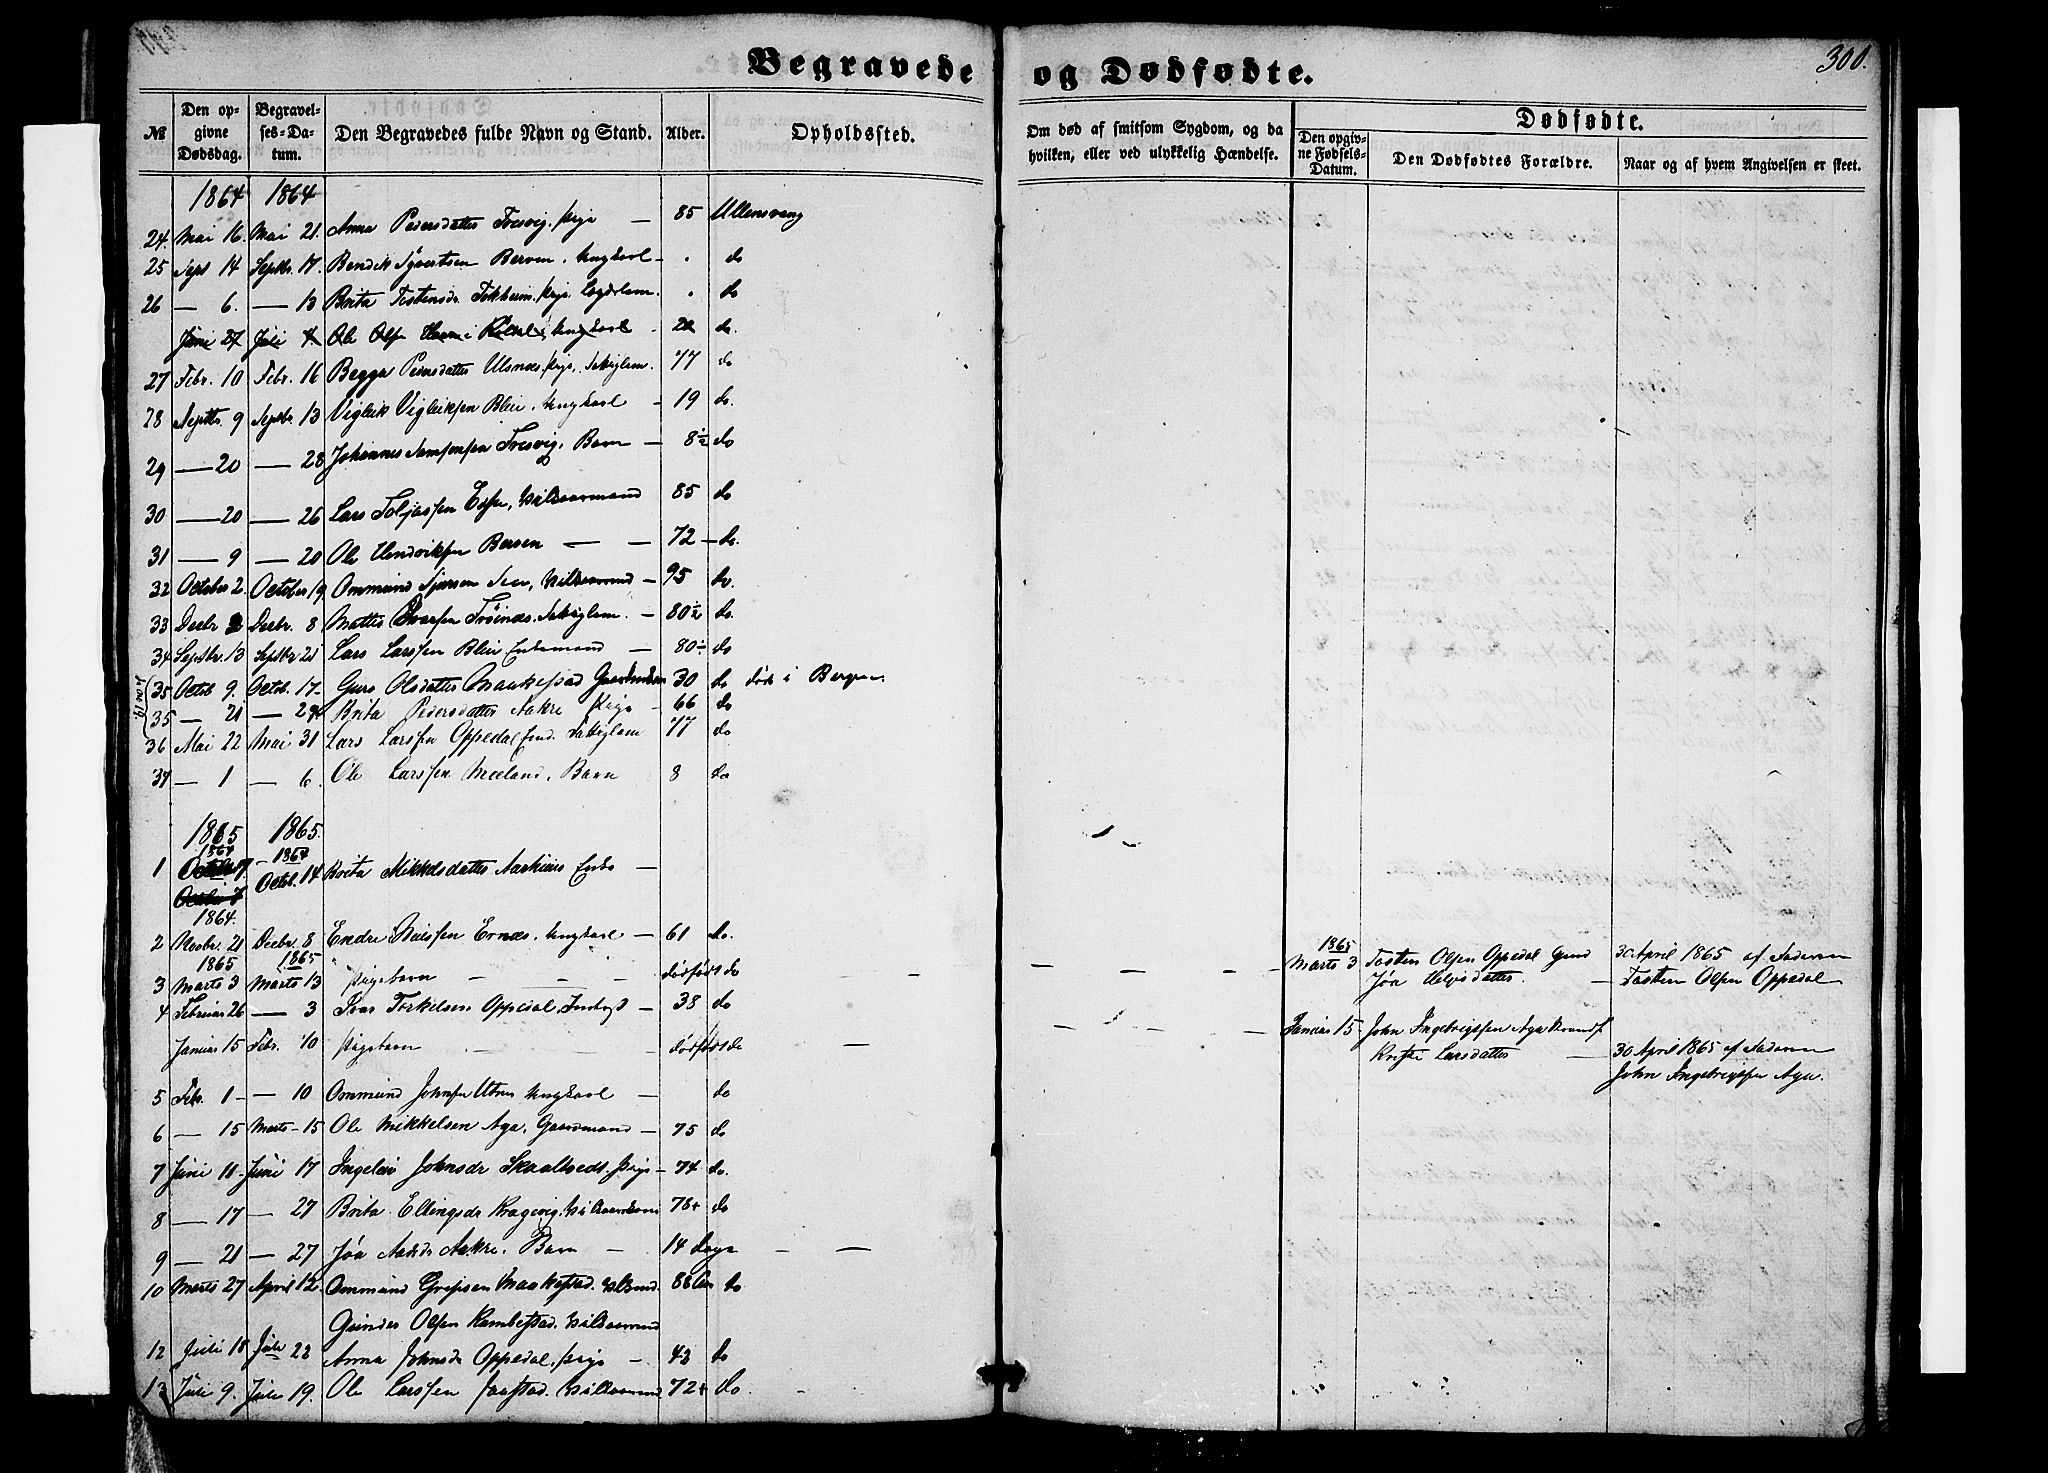 Begravede og Dødfødte.
300.
№
Den opgivne Dødsdag.
Begravelses-Datum.
Den Begravedes fulde Navn og Stand.
Alder.
Opholdssted.
Om død af smitsom Sygdom, og da hvilken, eller ved ulykkelig Hændelse.
Dødfødte.
Den opgivne Fødsels-Datum.
Den Dødfødtes Forældre.
Naar og af hvem Angivelsen er skeet.
1864 1864
24. Mai 16. Mai 21. Anna Pedersdatter Tresvig. Pige — 85 Ullensvang
25 Sept 14 Septbr. 17. Bendik Sjovertsen Berven. Ungkarl — do
26 — 6. — 13 Brita Tostensdr Tokheim. Pige. Lægdslem. do
Juni 27 Juli 4 Ole Olsen Ungkarl 22 do.
27 Febr. 10 Febr. 16 Begga Pedersdatter Ulsnæs. Pige. Fattiglem. 77 do
28 Septbr. 9 Septbr. 13 Vigleik Vigleiksen Bleie. Ungkarl — 19 do.
29 — 20 — 28 Johannes Samsonsen Tresvig. Barn — 8½ do
30 — 20 — 26 Lars Toljassen Espe, Kaarmand 85 do
31 — 9 — 20 Ole Henriksen Berven — — 72 — do.
32 October 2. October 19 Ommund 95 do.
33 Decbr 2 Decbr. 8. Mattes Ivarsen Trøinæs. Fattiglem. — 80½ do.
34 Septbr. 13 Septbr 21 Lars Larssen Bleie Enkemand — 80½ do
35 Octob 9. Octob. 17 Guro Olsdatter Maakestad 30 do død i Bergen
35 — 21 — 29 Brita Pedersdatter Aakre Pige — 66 do
36 Mai 22 Mai 31 Lars Larssen Oppedal Fattiglem 77 do
37 — 1 — 6. Ole Larssen Meeland. Barn 8 do
1865 1865.
1864 1864
1 Octob. 14 Brita Mikkelsdatter Enke —
1864.
2 Novbr. 21 Decbr. 8 Endre Nielssen Ernæs. Ungkarl — 61 do.
1865 1865
3 Marts 3 Marts 13 Pigebarn — — dødfødt do
1865
Marts 3 Tosten Olsen Oppedal Gmd
Jøa Helgesdatter. —
30 April 1865 af Faderen
Tosten Olsen Oppedal
4 Februar 26 — 3 Ivar Torkelsen Oppedal. 38 do
Januar 15 Febr. 10 Pigebarn dødfødt do
Januar 15 John Ingebrigtsen Aga
Larsdatter —
30 April 1865 af Faderen
John Ingebrigtsen Aga.
5 Feb. 1 — 10 Ommund Johnsen Utne Ungkarl — do
6 — 15 Marts 15 Ole Mikkelsen Aga. Gaardmand — 75 do
7 Juni 11 Juni 17 Ingeleiv Johnsdr Skaaltvedt. Pige — 74 do.
8 — 17 — 27 Brita Ellingsdr Kragevig. 78 do
9 — 21 — 27 Jøa Aakre. Barn — 14 Dage
10 Marts 27 April 12. Ommund Maakestad. 88 Aar do
Gunder Olsen Rambestad. Kaarmand
12 Juli 18 Juli 22 Anna Johnsdr Oppedal. Pige — 43 do
13 Juli 9. Juli 19. Ole Larssen Jaastad. Kaarmand 72 do